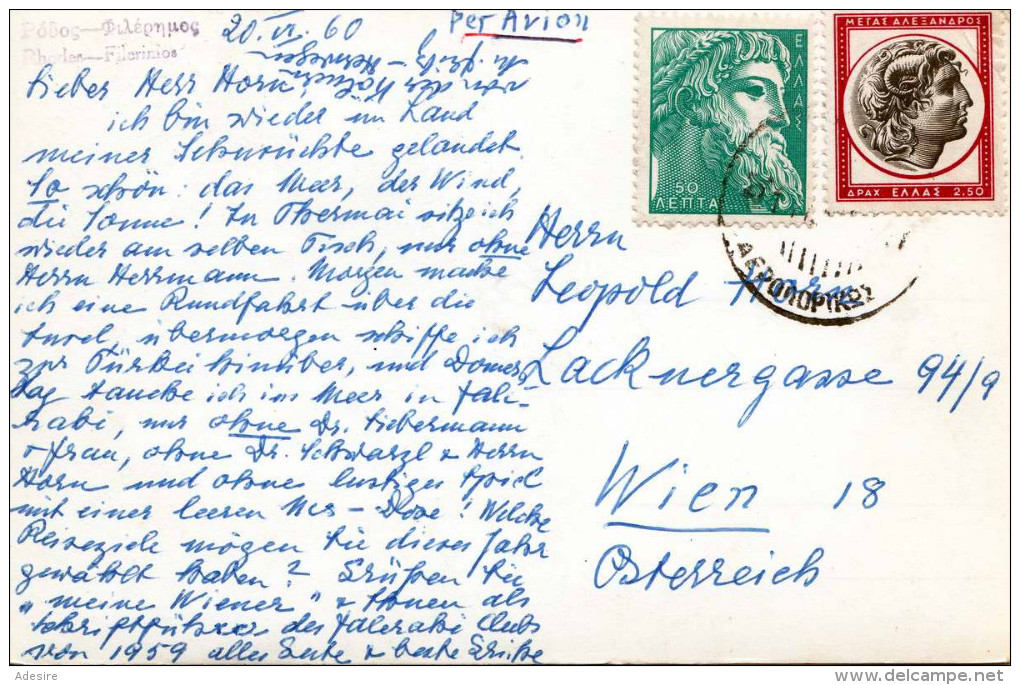 Ρόδος—Φιλέρημος
Rhodes—Filerimos
20. VI. 60
Per Avion
Lieber Herr Horn,
ich bin wieder im Land
meiner Sehnsüchte gelandet.
So schön: das Meer, der Wind,
die Sonne! In Thermai sitze ich
wieder am selben Tisch, nur ohne
Herrn Herrmann. Morgen mache
ich eine Rundfahrt über die
Insel, übermorgen schiffe ich
zur Türkei hinüber, und Donners-
tag tauche ich ins Meer in Fali-
raki, nur ohne Dr. Liebermann
+ Frau, ohne Dr. Schwarzl + Herrn
Horn und ohne lustiges Spiel
mit einer leeren Dose! Welche
Reiseziele mögen Sie dieses Jahr
gewählt haben? Grüßen Sie
"meine Wiener" + Ihnen als
Schriftführer des Faleraki Clubs
von 1959 alles Gute + beste Grüße
ΕΛΛΑΣ
50
ΛΕΠΤΑ
ΜΕΓΑΣ ΑΛΕΞΑΝΔΡΟΣ
ΔΡΑΧ ΕΛΛΑΣ 2.50
ΑΕΡΟΠΟΡΙΚΩΣ
Herrn
Leopold Horn
Lacknergasse 94/9
Wien 18
Österreich
Adesire
©delcampe.net